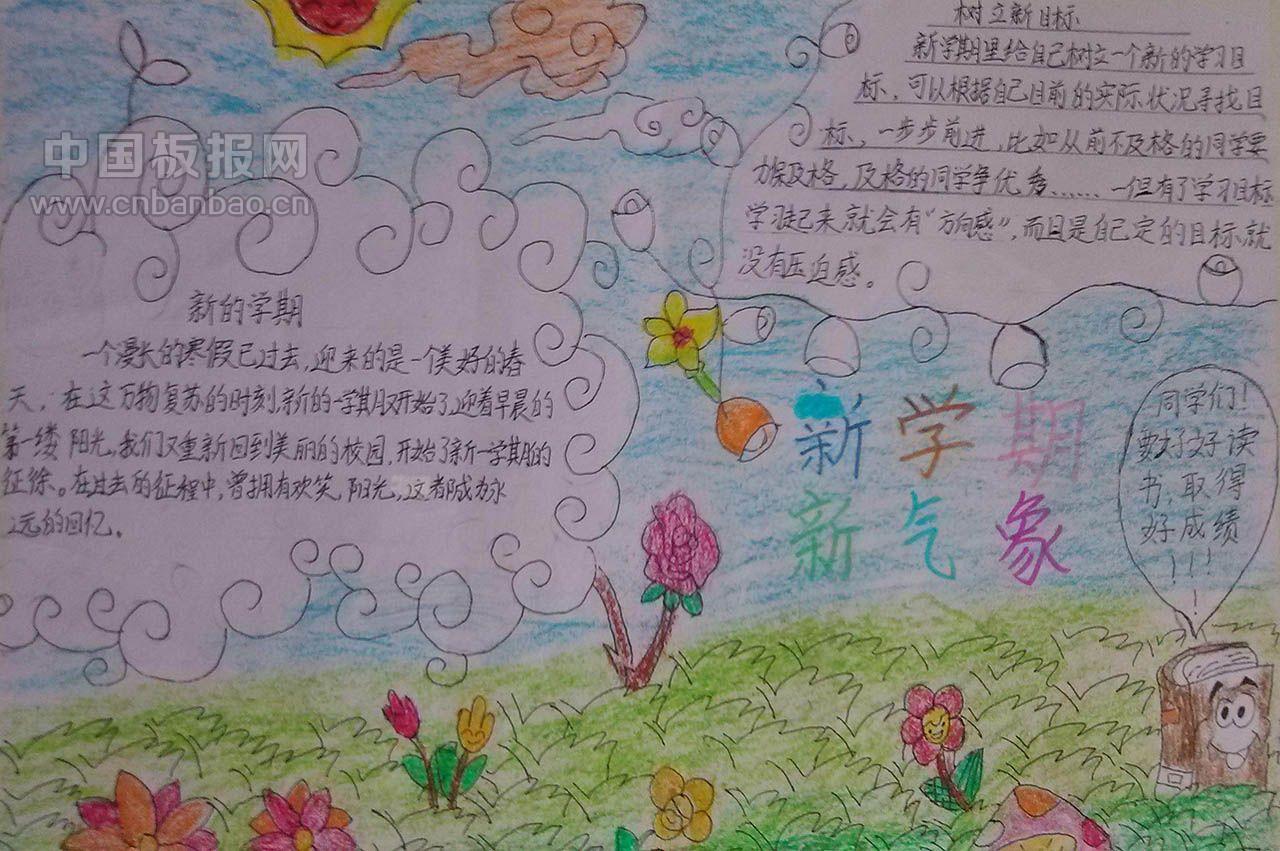 中国板报网
www.cnbanbao.cn
新的学期
一个漫长的寒假已过去，迎来的是一个美好的春
天，在这万物复苏的时刻，新的一学期又开始了，迎着早晨的
第一缕阳光，我们又重新回到美丽的校园，开始了新一学期的
征徐。在过去的征程中，曾拥有欢笑，阳光，这都成为永
远的回忆。
树立新目标
新学期里给自己树立一个新的学习目
标，可以根据自己目前的实际状况寻找目
标，一步步前进，比如从前不及格的同学要
力保及格，及格的同学争优秀……一但有了学习目标
学习起来就会有“方向感”，而且是自己定的目标就
没有压迫感。
新学期
新气象
同学们！
要好好读
书，取得
好成绩
！！！